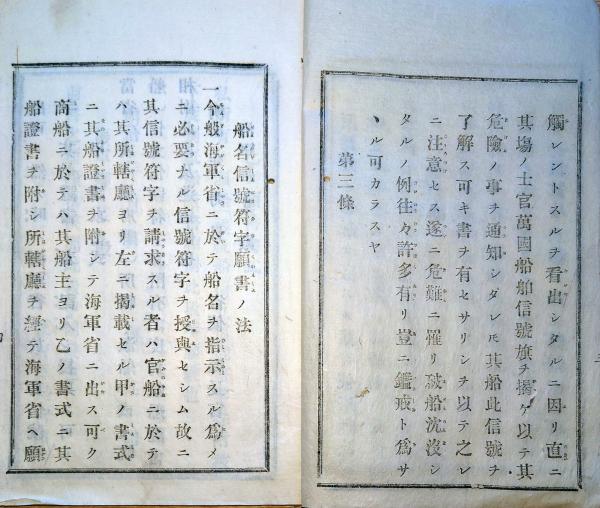 觸レントスルヲ看出シタルニ因リ直ニ
其塲ノ士官萬國船舶信號旗ヲ揭ケ以テ其
危險ノ事ヲ通知シダレㇹ其船此信號ヲ
了解ス可キ書ヲ有セサリシヲ以テ之レ
ニ注意セス遂ニ危難ニ罹リ破船沈沒シ
タルノ例往々許多有リ豈ニ鑑戒ト爲サ
ヽル可カラスヤ
第三條
船名信號符字願書ノ法
一今般海軍省ニ於テ船名ヲ指示スル爲メ
ニ必要ナル信號符字ヲ授與セシム故ニ
其信號符字ヲ請求スル者ハ官船ニ於テ
ハ其所轄廳ヨリ左ニ揭載セル甲ノ書式
ニ其船證書ヲ附シテ海軍省ニ出ス可ク
商船ニ於テハ其船主ヨリ乙ノ書式ニ其
船證書ヲ附シ所轄廳ヲ經テ海軍省ヘ願